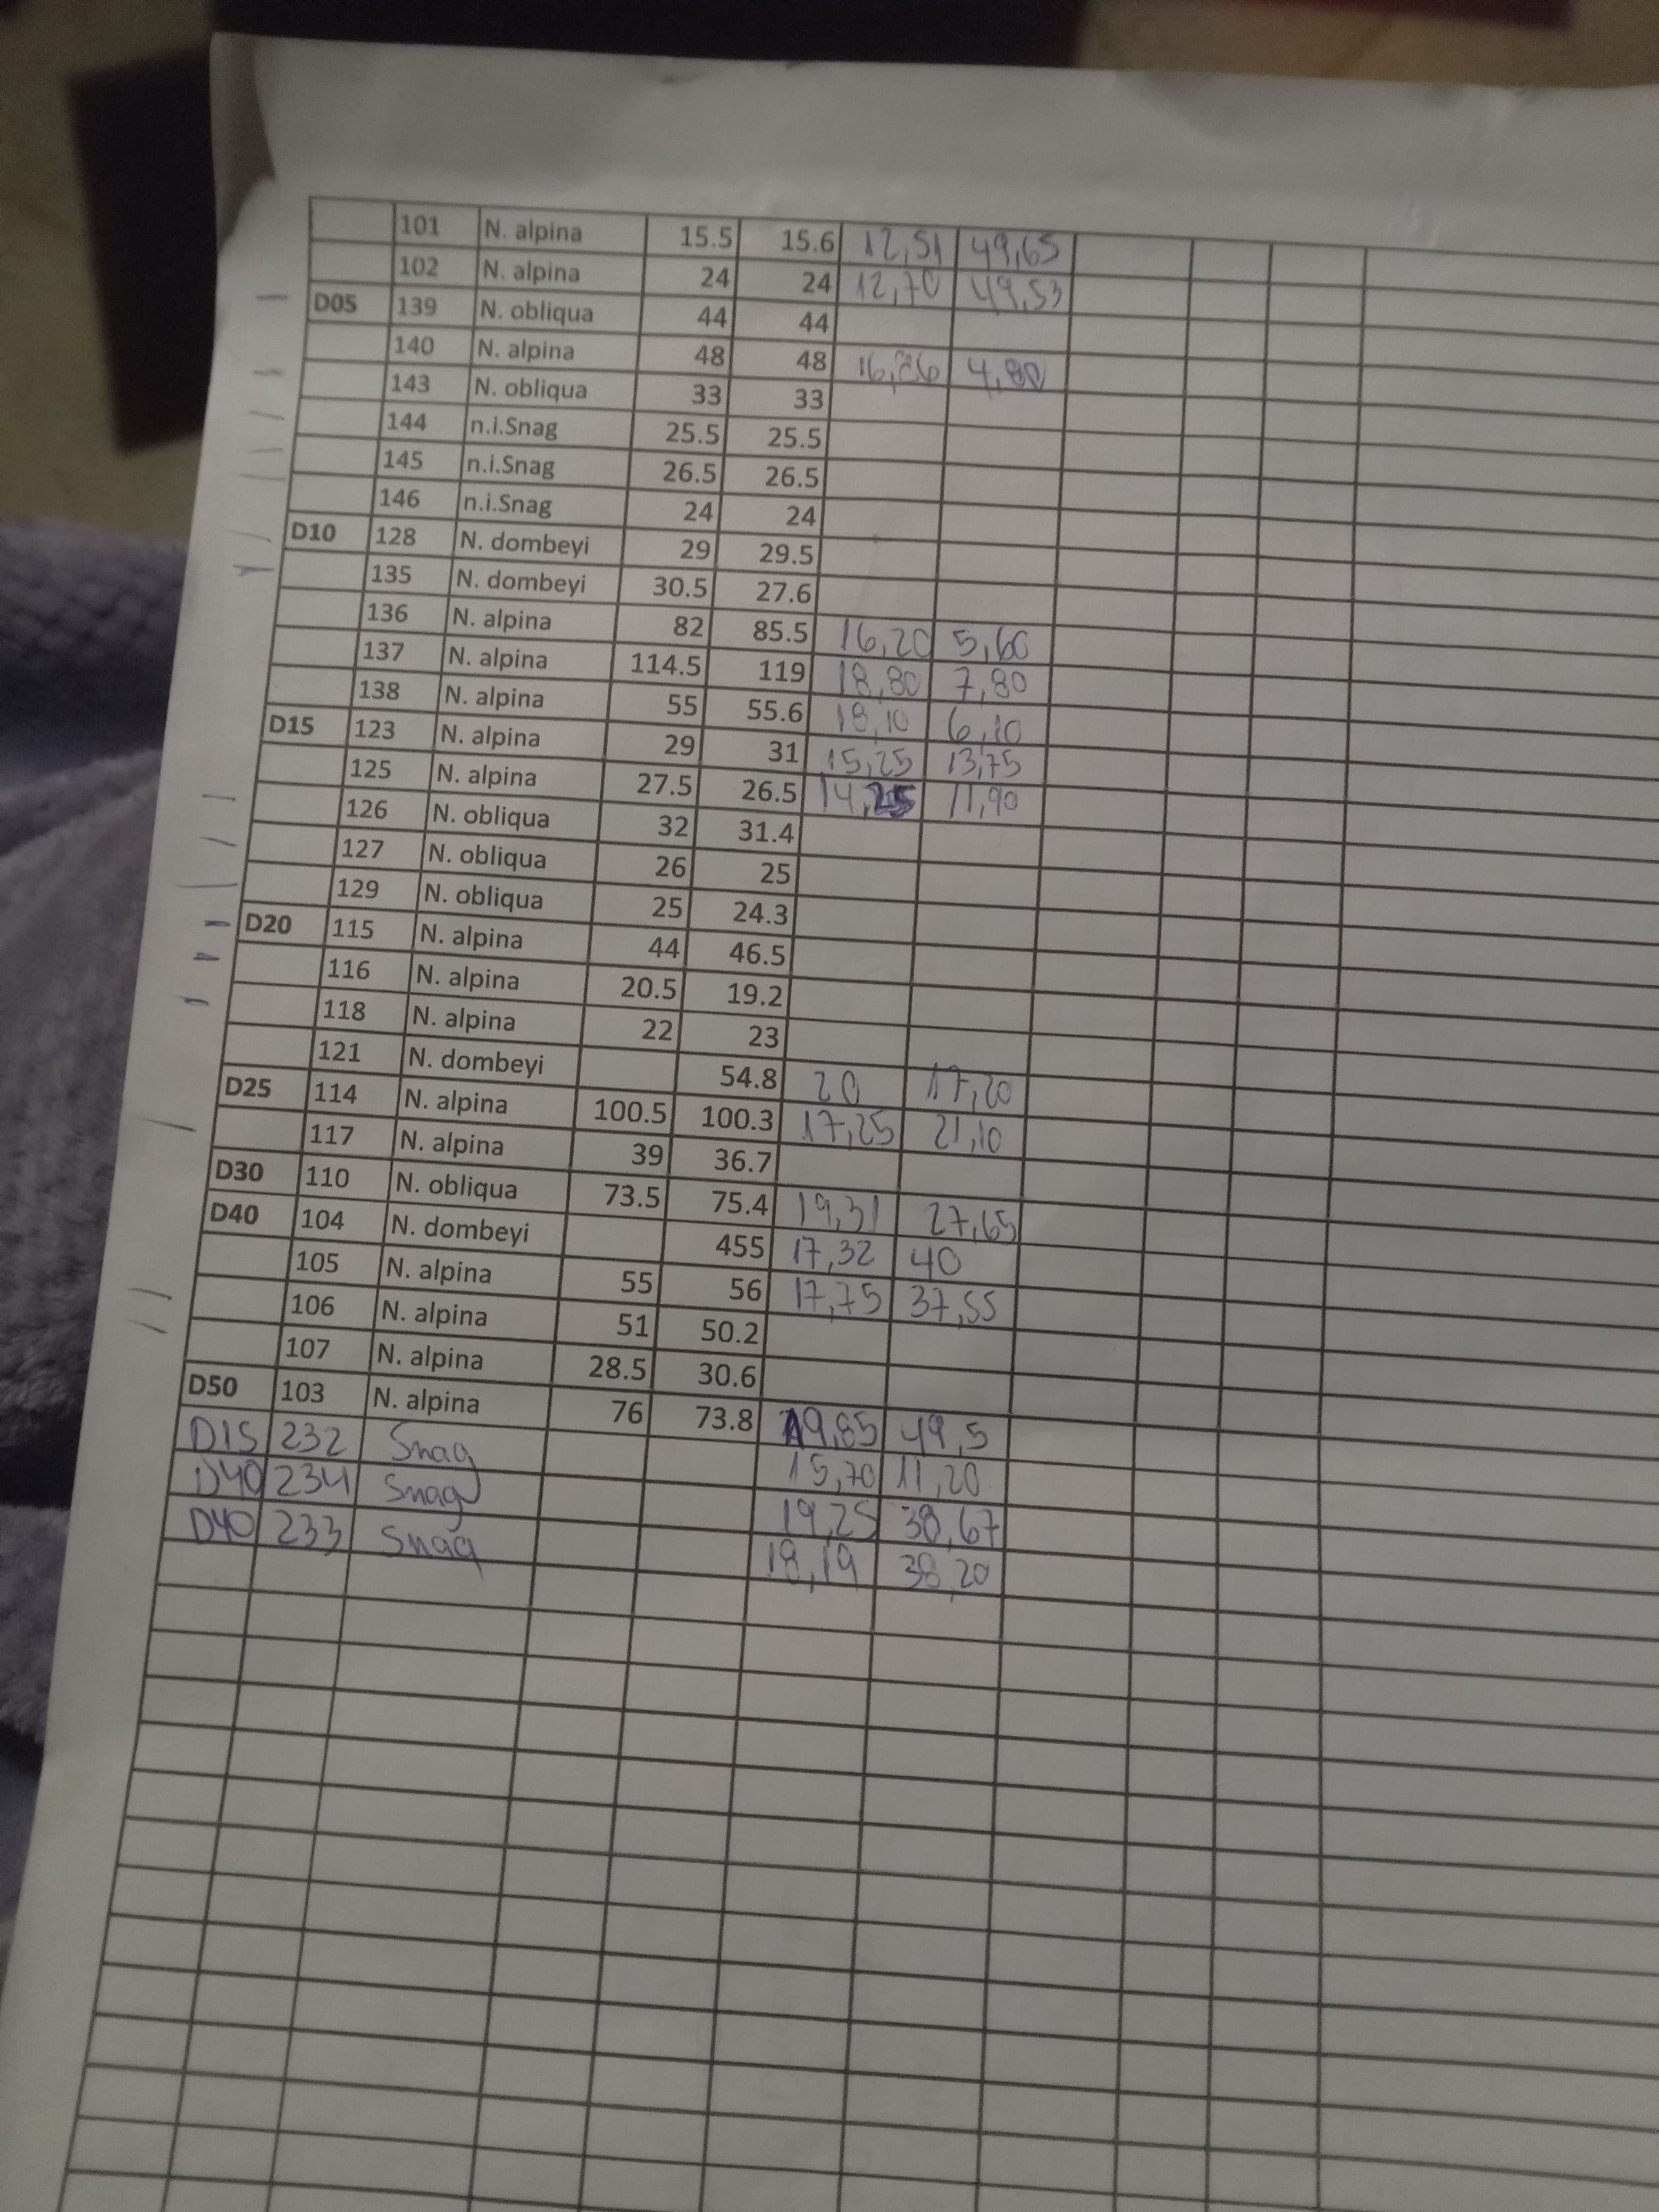 101 N. alpina 15.5 15.6 12,51 49,65
102 N. alpina 24 24 12,70 49,53
D05 139 N. obliqua 44 44
140 N. alpina 48 48 4,80
143 N. obliqua 33 33
144 n.i.Snag 25.5 25.5
145 n.i.Snag 26.5 26.5
146 n.i.Snag 24 24
D10 128 N. dombeyi 29 29.5
135 N. dombeyi 30.5 27.6
136 N. alpina 82 85.5 16,20 5,60
137 N. alpina 114.5 119 18,80 7,80
138 N. alpina 55 55.6 18,10 6,10
D15 123 N. alpina 29 31 15,25 13,75
125 N. alpina 27.5 26.5 14,25 11,90
126 N. obliqua 32 31.4
127 N. obliqua 26 25
129 N. obliqua 25 24.3
D20 115 N. alpina 44 46.5
116 N. alpina 20.5 19.2
118 N. alpina 22 23
121 N. dombeyi 54.8 20 17,20
D25 114 N. alpina 100.5 100.3 17,25 21,10
117 N. alpina 39 36.7
D30 110 N. obliqua 73.5 75.4 19,31 27,65
D40 104 N. dombeyi 455 17,32 40
105 N. alpina 55 56 17,75 37,55
106 N. alpina 51 50.2
107 N. alpina 28.5 30.6
D50 103 N. alpina 76 73.8 19,85 49,5
D15 232 Snag 15,70 11,20
D40 234 Snag 19,25 38,67
D40 233 Snag 18,19 38,20